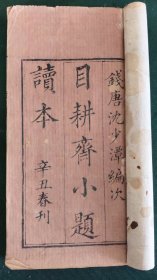 錢唐沈少潭編次
目耕齋小題
讀本
辛丑春刊